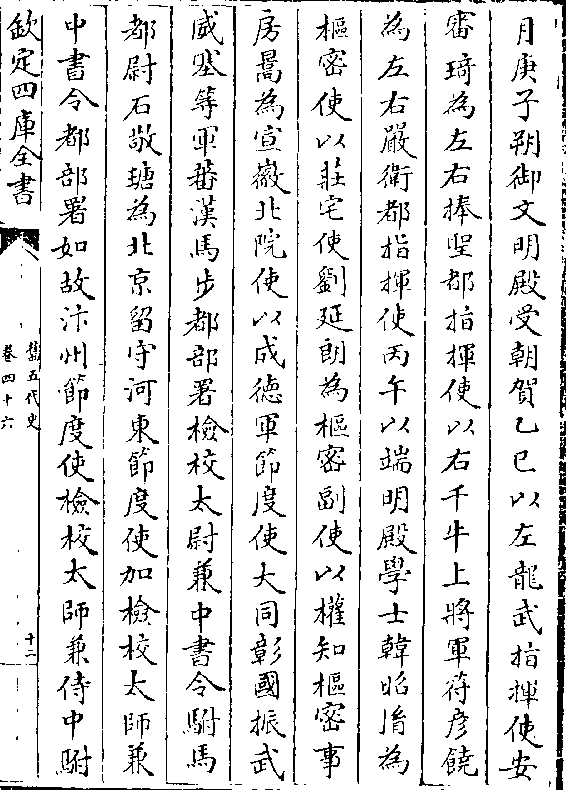 月庚子朔御文明殿受朝賀乙巳以左龍武指揮使安
審琦為左右捧聖都指揮使以右千牛上將軍符彦饒
為左右嚴衛都指揮使丙午以端明殿學士韓昭𦙍為
樞密使以莊宅使劉延朗為樞密副使以權知樞密事
房暠為宣徽北院使以成德軍節度使大同彰國振武
威塞等軍蕃漢馬步都部署檢校太尉兼中書令駙馬
都尉石敬瑭為北京留守河東節度使加檢校太師兼
中書令都部署如故汴州節度使檢校太師兼侍中駙
欽定四庫全書
舊五代史
卷四十六
十二